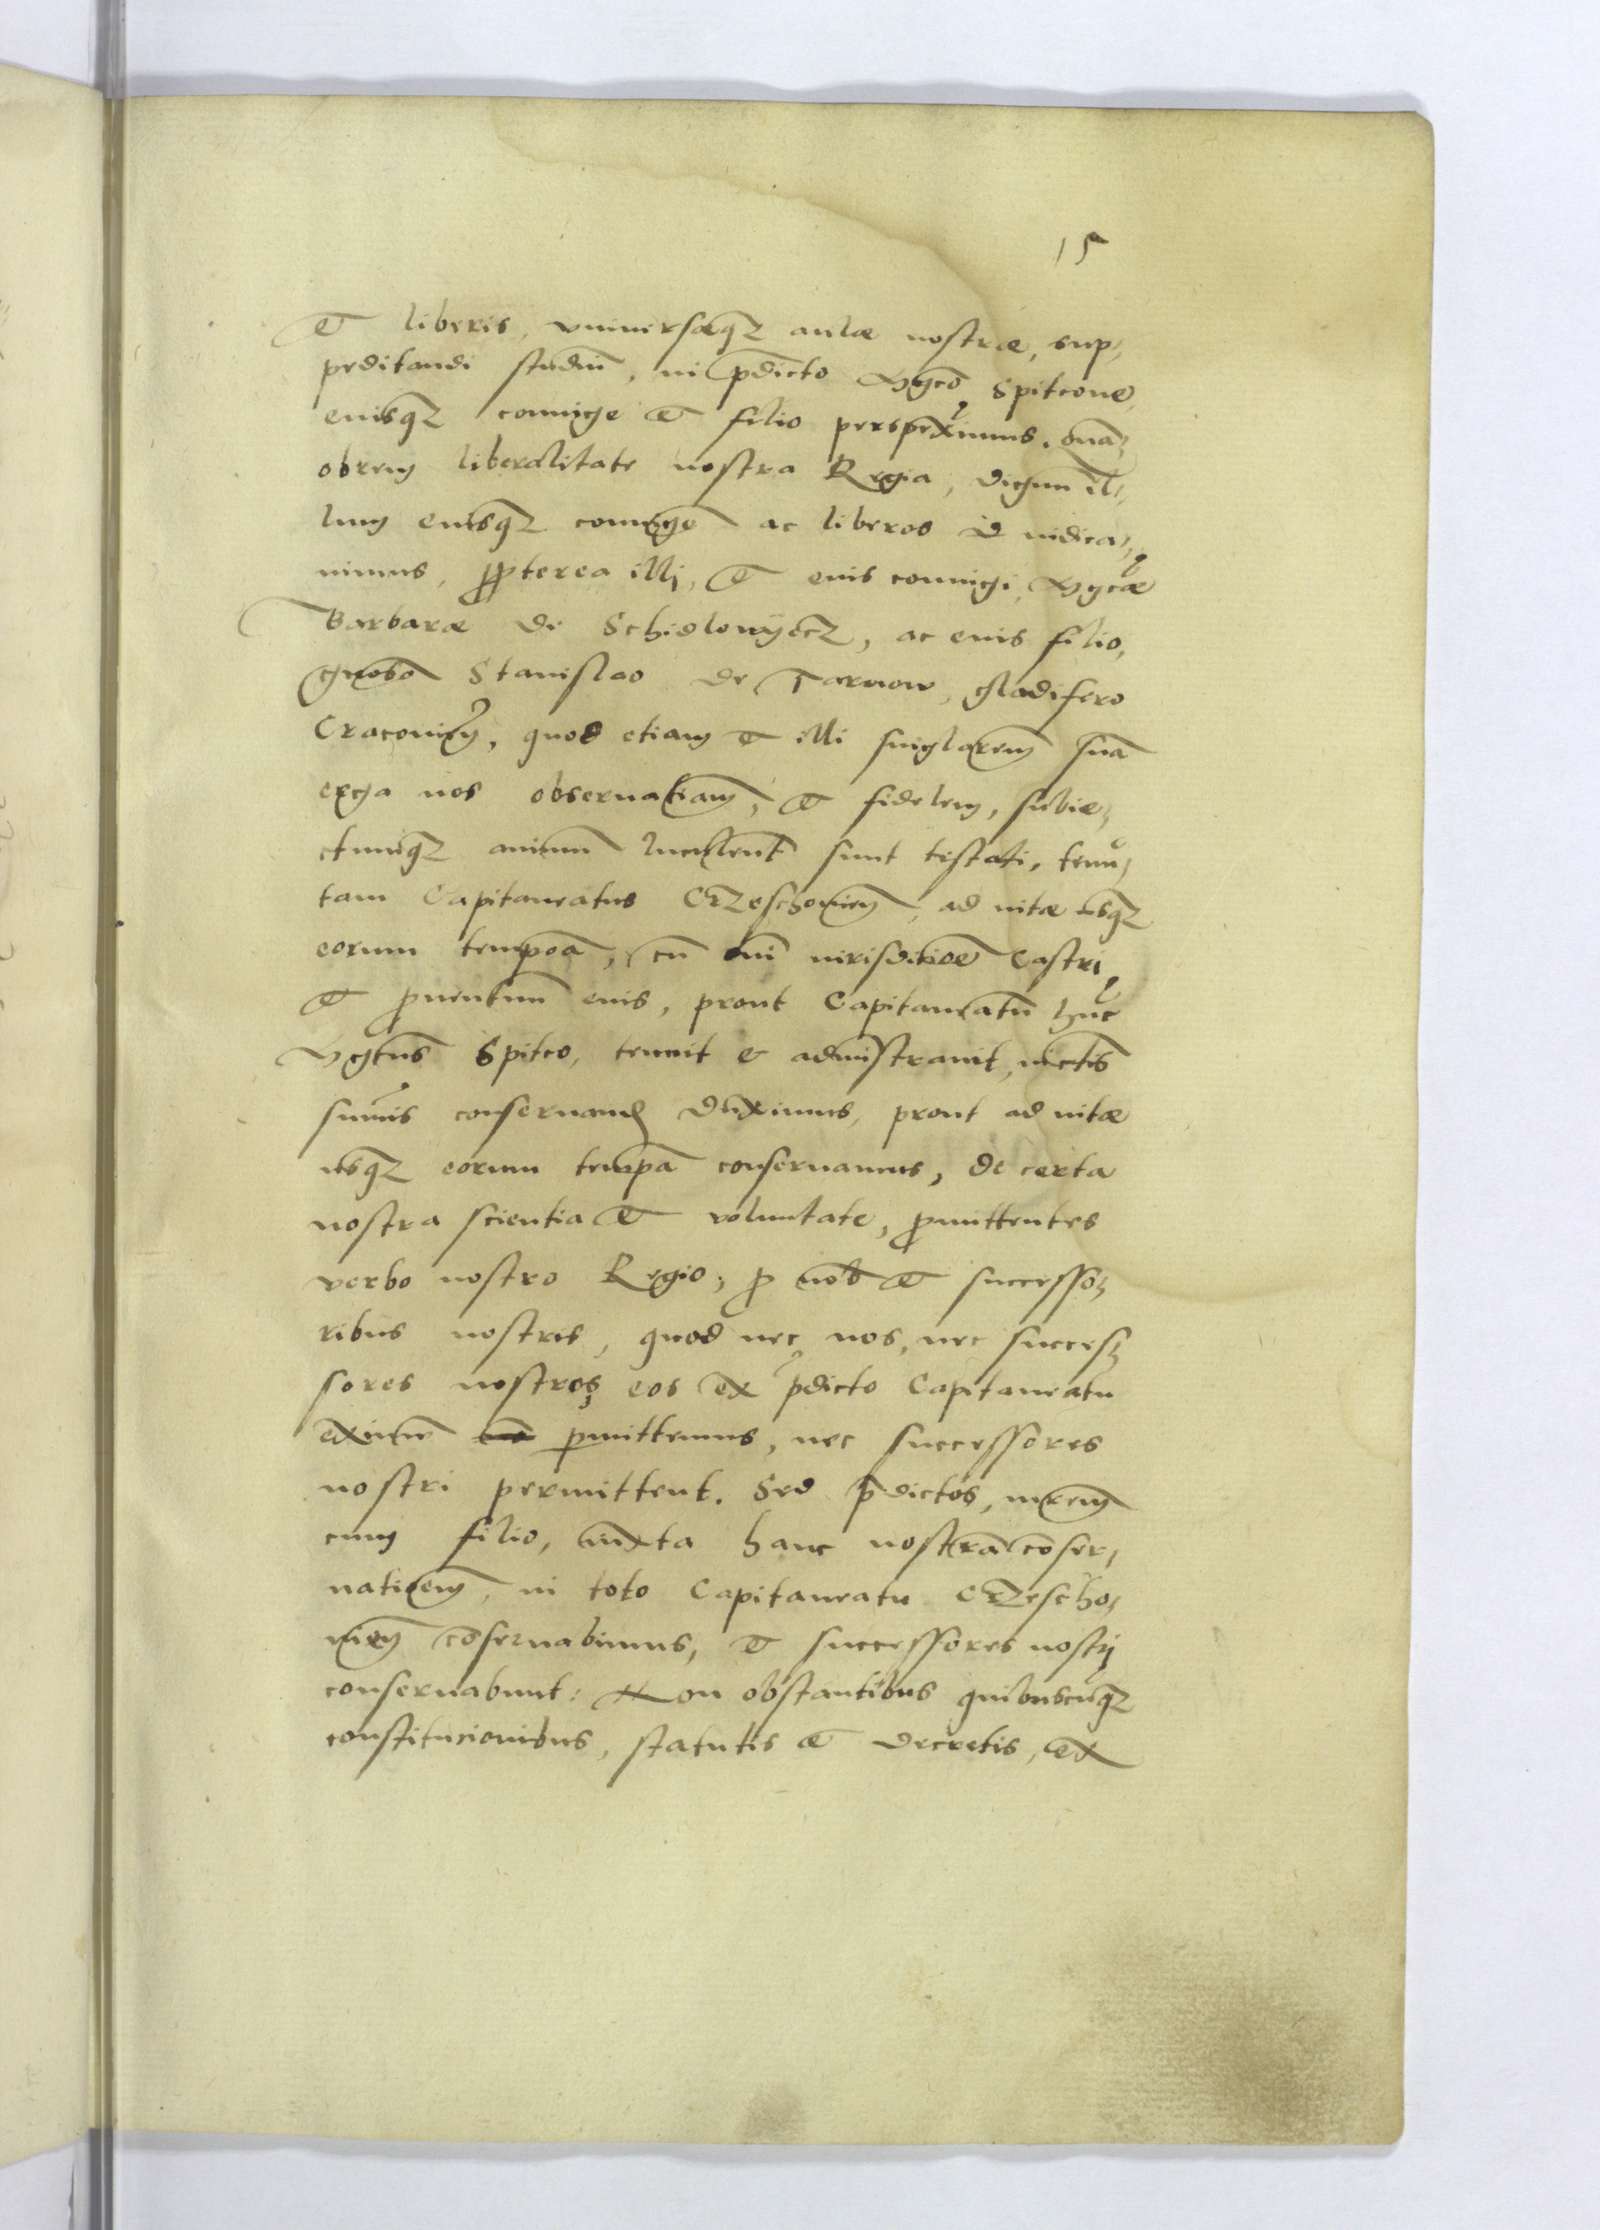 15
et liberis, vniuersæq₃ aulæ nostræ, sup-
peditandi studiū, in p̄dicto Mgco Spitcone,
eiusq₃ coniuge et filio perspeximus. Quā-
obrem liberalitate nostra Regia, dignum il-
lum eiusq₃ coniugē ac liberos iudica-
uimus, propterea illi, et eius coniugi, Mgcæ
Barbaræ de Schidlowyecz, ac eius filio,
gnoso Stanislao de Tarnow, gladifero
Cracouieñ, quod etiam et illi singlarem suā
erga nos obseruatiam, et fidelem, subie-
ctumq₃ animū luculent sunt testati, tenu-
tam Capitaneatus Crzeschouieñ, ad vitæ usq₃
eorum tempoā, cū om̄i iurisditioē Castri,
et prouentuum eius, prout Capitaneatū hūc
Mgcus Spitco, tenuit et administrauit,
conseruand duximus, prout ad vitæ
usq₃ eorum tempā conseruamus, de certa
nostra scientia et voluntate, promittentes
verbo nostro Regio, pro nob et successo-
ribus nostris, quod nec nos, nec succes-
sores nostros eos ex p̄dicto Capitaneatu
eximere permittemus, nec successores
nostri permittent. Sed p̄dictos, mrem
cum filio, iuxta hanc nostrā cōser-
uatioem, in toto Capitaneatu Crzescho-
uieñ cōseruabimus, et successores nostrj
conseruabunt: Non obstantibus quibuscūq₃
constitucionibus, statutis et decretis, ex